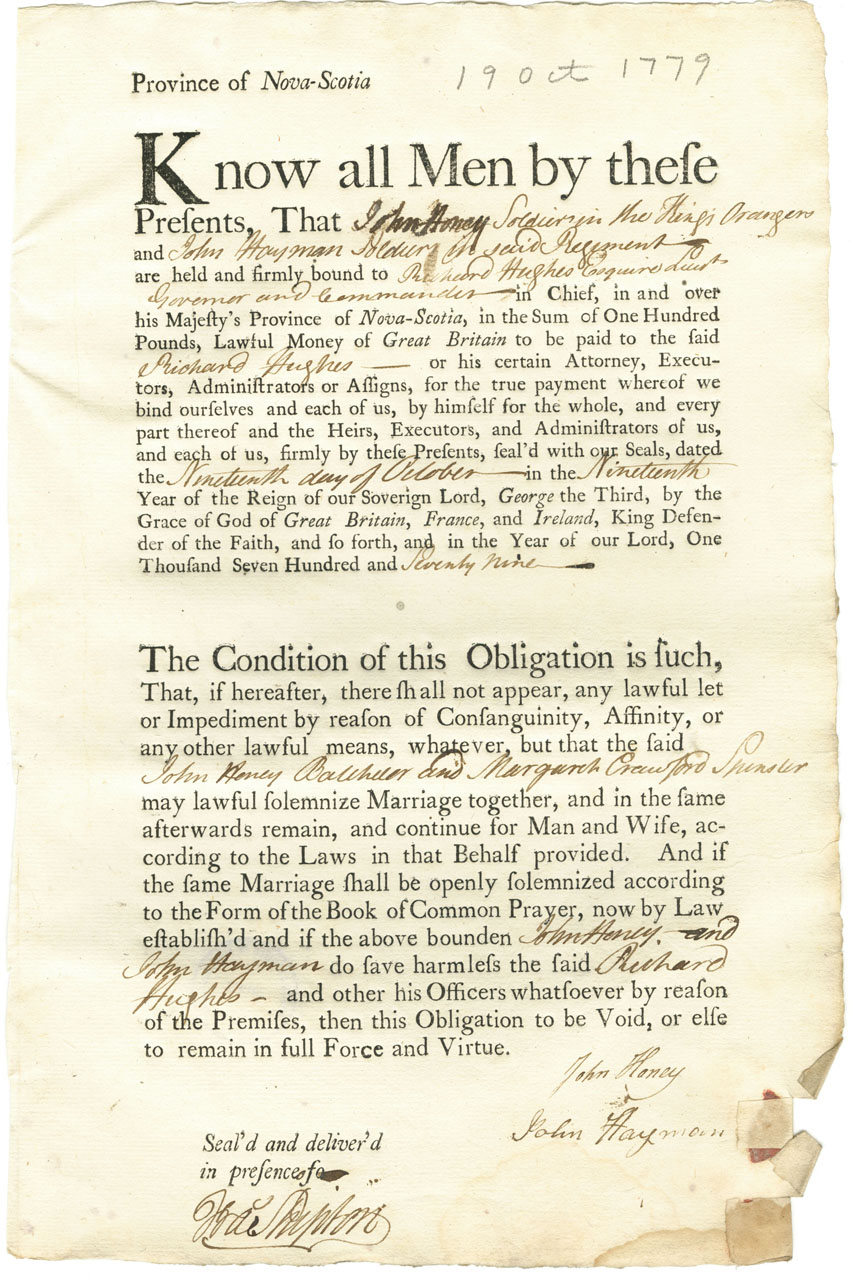 Province of Nova-Scotia
19 Oct 1779
Know all Men by theſe
Preſents, That John Honey Soldier in the King's Orangers
and John Hayman Soldier in said Regiment
are held and firmly bound to Richard Hughes Esquire Lieut
Governor and Commander in Chief, in and over
his Majeſty's Province of Nova-Scotia, in the Sum of One Hundred
Pounds, Lawful Money of Great Britain to be paid to the ſaid
Richard Hughes — or his certain Attorney, Execu-
tors, Adminiſtrators or Aſſigns, for the true payment whereof we
bind ourſelves and each of us, by himſelf for the whole, and every
part thereof and the Heirs, Executors, and Adminiſtrators of us,
and each of us, firmly by theſe Preſents, ſeal'd with our Seals, dated
the Nineteenth day of October — in the Nineteenth
Year of the Reign of our Soverign Lord, George the Third, by the
Grace of God of Great Britain, France, and Ireland, King Defen-
der of the Faith, and ſo forth, and in the Year of our Lord, One
Thouſand Seven Hundred and Seventy nine —
The Condition of this Obligation is ſuch,
That, if hereafter, there ſhall not appear, any lawful let
or Impediment by reaſon of Conſanguinity, Affinity, or
any other lawful means, whatever, but that the ſaid
John Honey Batcheler and Margaret Crawford Spinster
may lawful ſolemnize Marriage together, and in the ſame
afterwards remain, and continue for Man and Wife, ac-
cording to the Laws in that Behalf provided. And if
the ſame Marriage ſhall be openly ſolemnized according
to the Form of the Book of Common Prayer, now by Law
eſtabliſh'd and if the above bounden John Honey. and
John Hayman do ſave harmleſs the ſaid Richard
Hughes — and other his Officers whatſoever by reaſon
of the Premiſes, then this Obligation to be Void, or elſe
to remain in full Force and Virtue.
John Honey
John Hayman
Seal'd and deliver'd
in preſence of
Shipton